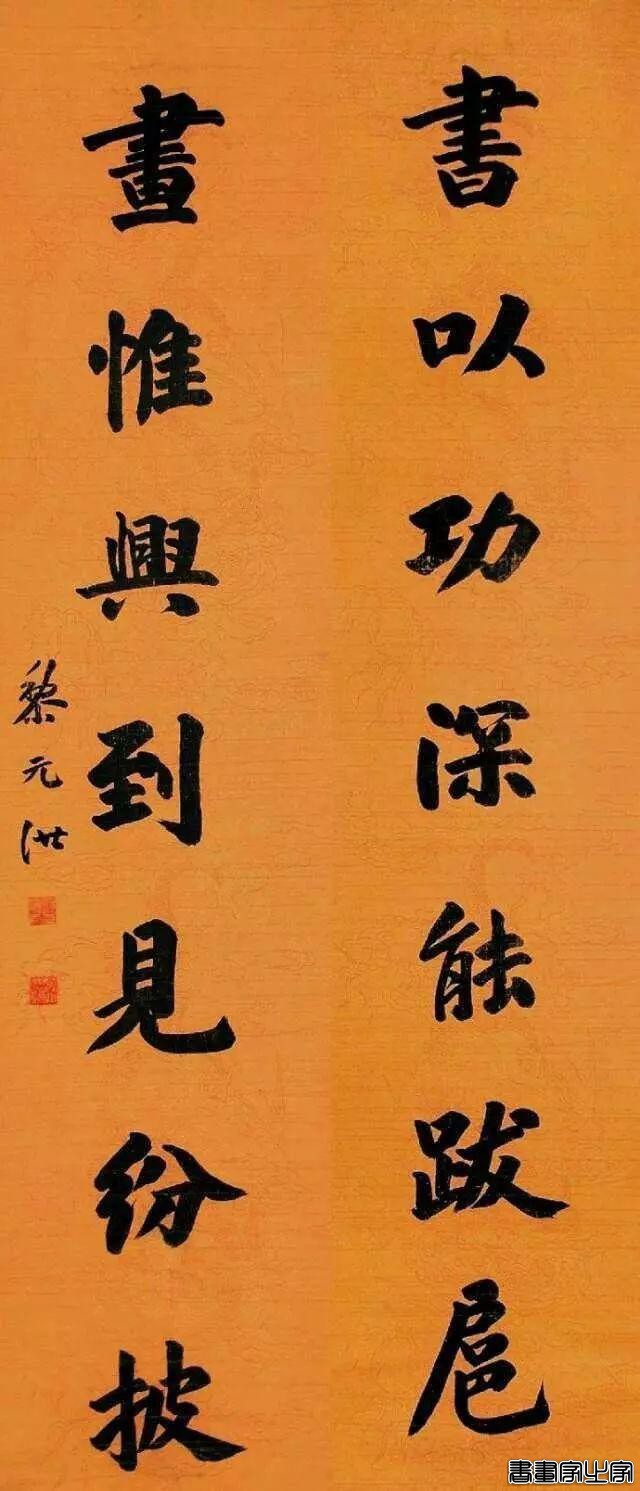 書以功深能跋扈
畫惟興到見紛披
黎元洪
書畫家之家